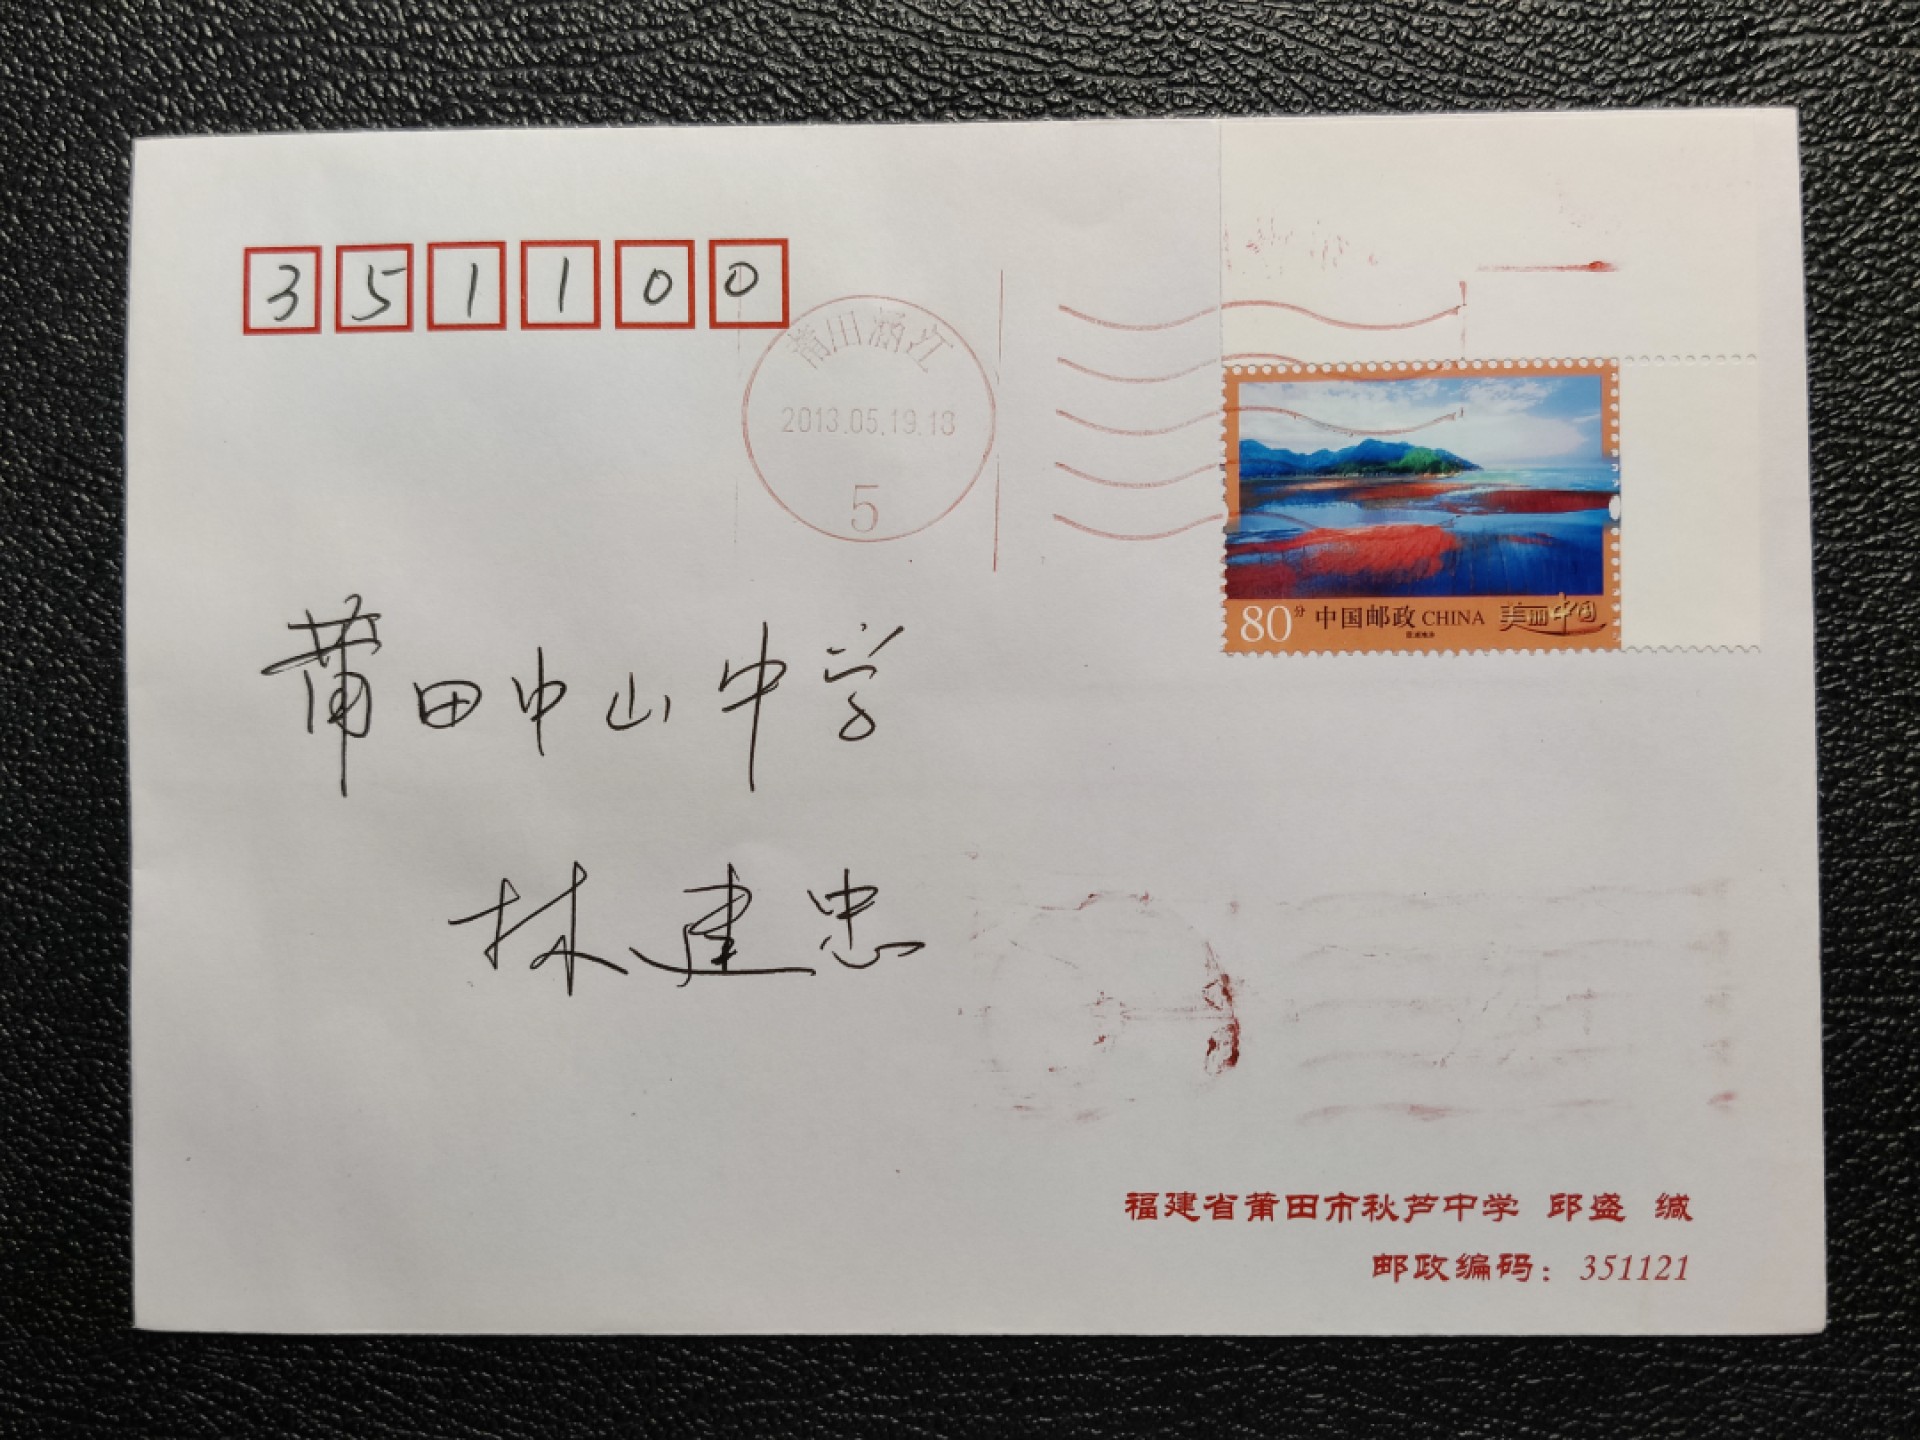 351100
莆田涵江
2013.05.19.18
5
80分 中国邮政 CHINA 美丽中国
莆田中山中学
林建忠
福建省莆田市秋芦中学 邱盛 缄
邮政编码：351121